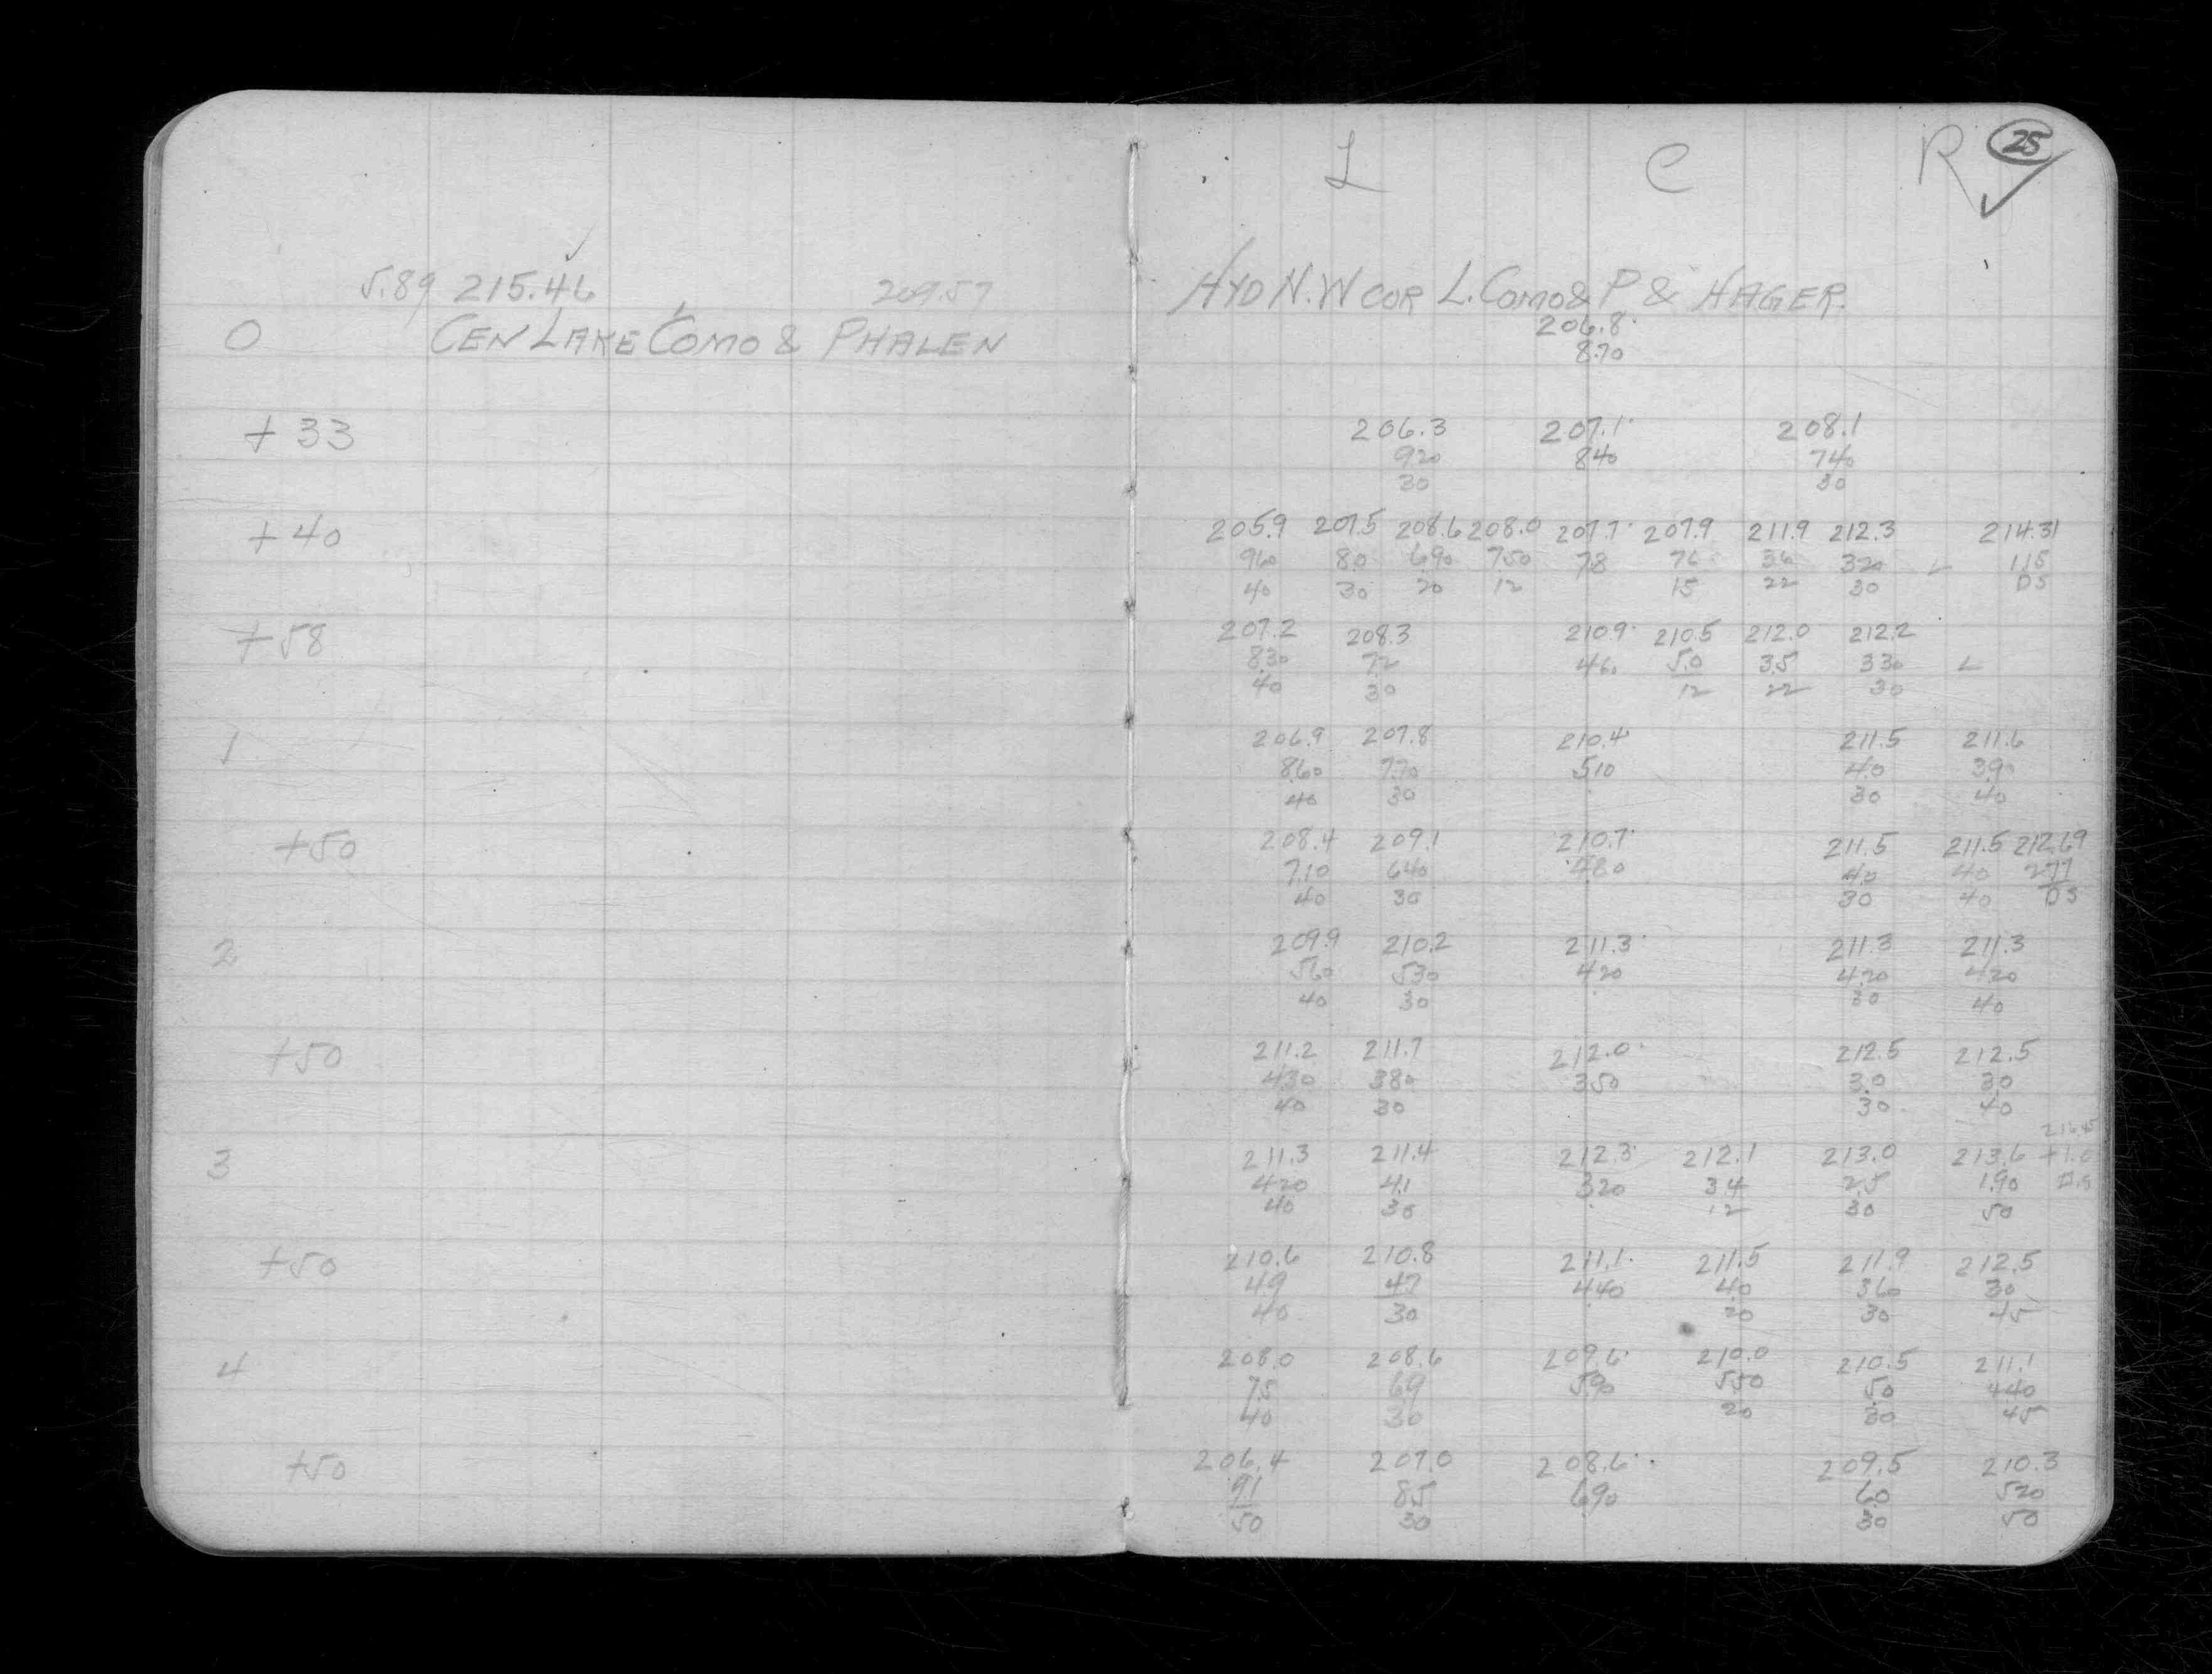 L C R 25
5.89 215.46 209.57 HYD N.W COR L. COMO & P & HAGER.
0 CEN LAKE COMO & PHALEN 206.8
8.70
+33 206.3 207.1 208.1
920 840 740
30 30
+40 205.9 207.5 208.6 208.0 207.7 207.9 211.9 212.3 214.31
960 80 690 750 78 76 36 320 L 1.15
40 30 20 12 15 22 30 DS
+58 207.2 208.3 210.9 210.5 212.0 212.2
830 72 460 5.0 35 330 L
40 30 12 22 30
1 206.9 207.8 210.4 211.5 211.6
860 770 510 40 390
40 30 30 40
+50 208.4 209.1 210.7 211.5 211.5 212.69
710 640 480 40 40 277
40 30 30 40 DS
2 209.9 210.2 211.3 211.3 211.3
560 530 420 420 420
40 30 30 40
+50 211.2 211.7 212.0 212.5 212.5
430 380 350 30 30
40 30 30 40
3 211.3 211.4 212.3 212.1 213.0 213.6 +1.0
420 41 320 34 25 190 D.S
40 30 12 30 50
+50 210.6 210.8 211.1 211.5 211.9 212.5
49 47 440 40 360 30
40 30 20 30 45
4 208.0 208.6 209.6 210.0 210.5 211.1
75 69 590 550 50 440
40 30 20 30 45
+50 206.4 207.0 208.6 209.5 210.3
91 85 690 60 520
50 30 30 50